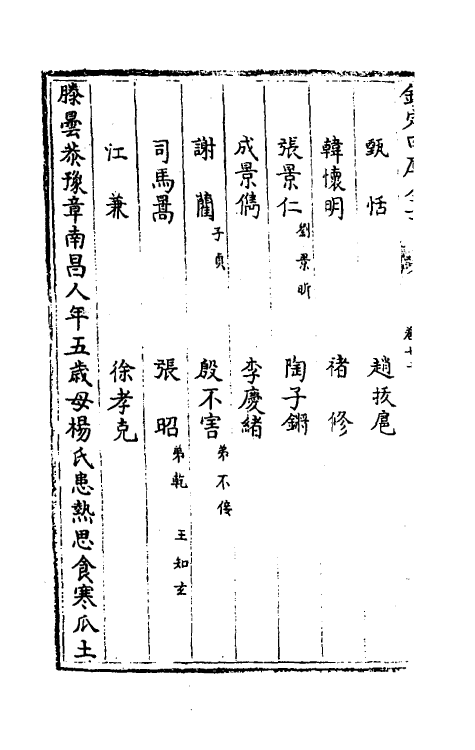 欽定四庫全書
卷七十
甄恬　趙拔扈
韓懷明　褚修
張景仁　劉景昕　陶子鏘
成景儁　李慶緒
謝藺　子貞　殷不害　弟不佞
司馬暠　張昭　弟乾　王知玄
江蒹　徐孝克
滕曇恭豫章南昌人年五歲母楊氏患熱思食寒瓜土